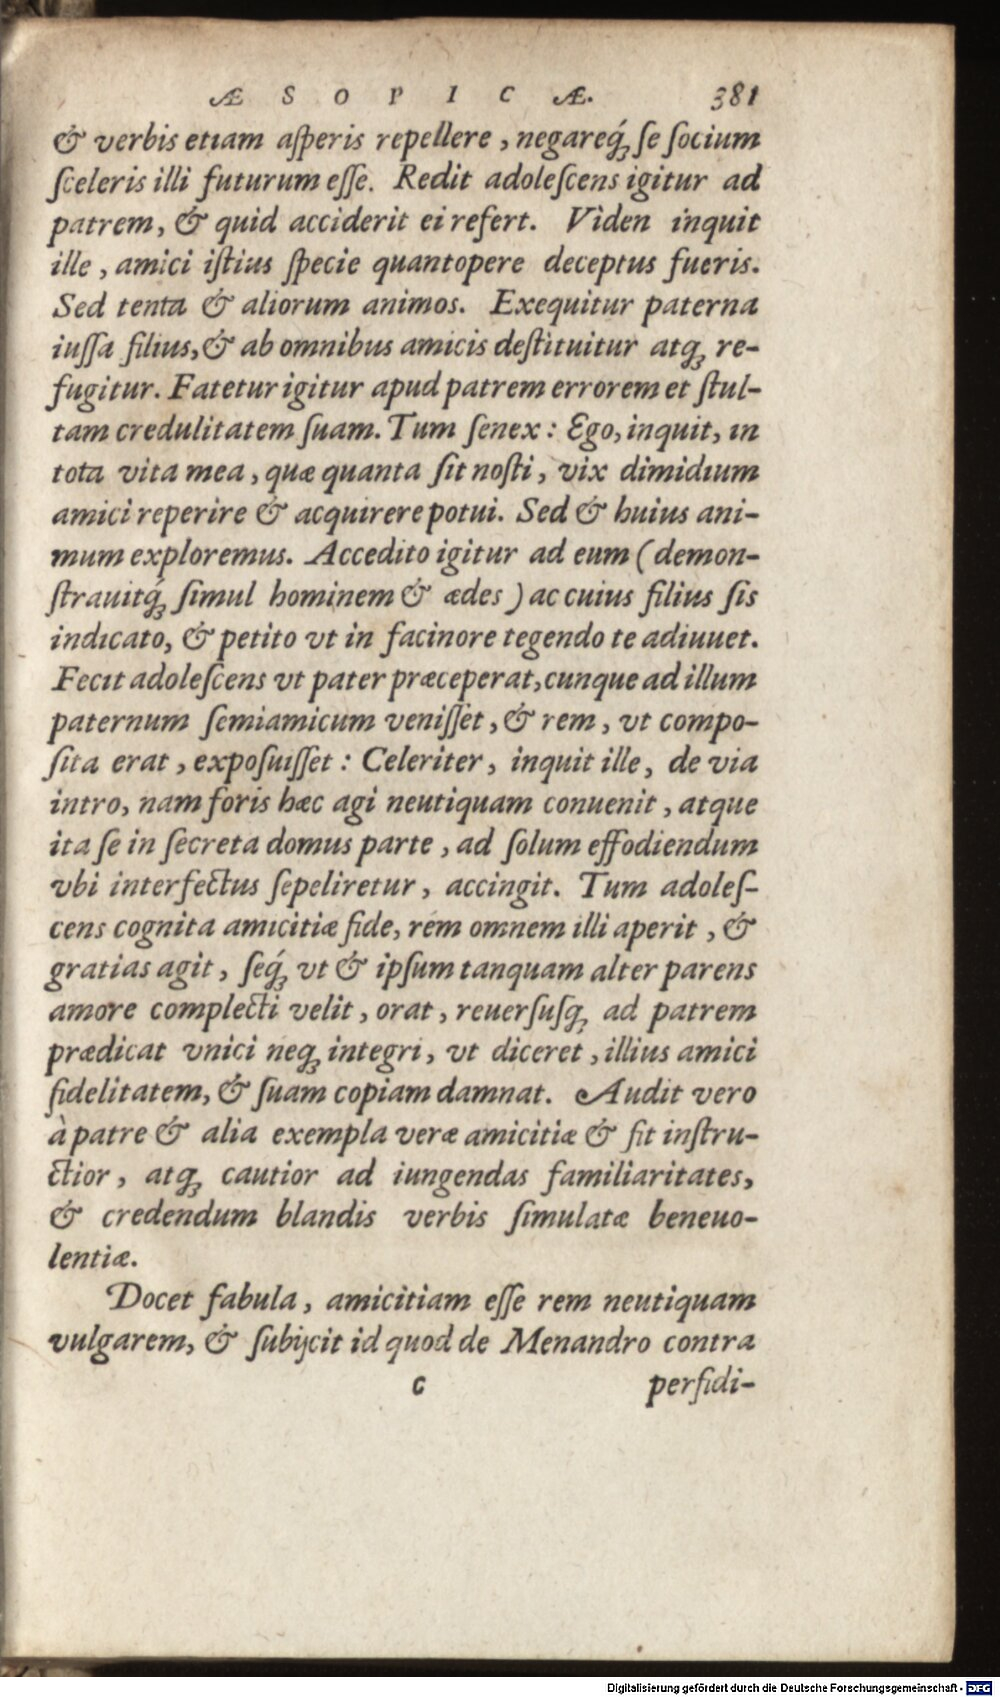 ÆSOPICÆ. 381
& verbis etiam aſperis repellere, negareq́; ſe ſocium
ſceleris illi futurum eſſe. Redit adoleſcens igitur ad
patrem, & quid acciderit ei refert. Viden inquit
ille, amici iſtius ſpecie quantopere deceptus fueris.
Sed tenta & aliorum animos. Exequitur paterna
iuſſa filius, & ab omnibus amicis deſtituitur atq; re-
fugitur. Fatetur igitur apud patrem errorem et ſtul-
tam credulitatem ſuam. Tum ſenex: Ego, inquit, in
tota vita mea, quæ quanta ſit noſti, vix dimidium
amici reperire & acquirere potui. Sed & huius ani-
mum exploremus. Accedito igitur ad eum (demon-
ſtrauitq́; ſimul hominem & ædes) ac cuius filius ſis
indicato, & petito vt in facinore tegendo te adiuuet.
Fecit adoleſcens vt pater præceperat, cunque ad illum
paternum ſemiamicum veniſſet, & rem, vt compo-
ſita erat, expoſuiſſet: Celeriter, inquit ille, de via
intro, nam foris hæc agi neutiquam conuenit, atque
ita ſe in ſecreta domus parte, ad ſolum effodiendum
vbi interfectus ſepeliretur, accingit. Tum adoleſ-
cens cognita amicitiæ fide, rem omnem illi aperit, &
gratias agit, ſeq́; vt & ipſum tanquam alter parens
amore complecti velit, orat, reuerſuſq; ad patrem
prædicat vnici neq; integri, vt diceret, illius amici
fidelitatem, & ſuam copiam damnat. Audit vero
à patre & alia exempla veræ amicitiæ & fit inſtru-
ctior, atq; cautior ad iungendas familiaritates,
& credendum blandis verbis ſimulatæ beneuo-
lentiæ.
Docet fabula, amicitiam eſſe rem neutiquam
vulgarem, & ſubijcit id quod de Menandro contra
c perfidi-
Digitalisierung gefördert durch die Deutsche Forschungsgemeinschaft - DFG